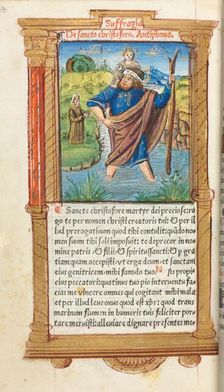 Suffragia
De sancto christoforo. Antiphona.
Sancte christofore martyr dei preciose rogo
te per nomen christi creatoris tui: & per il
lud prerogatium quod tibi contulit quādo no
men suum tibi soli imposuit: te deprecor in no
mine patris & filii & spiritussancti: & p gra
tiam quam accepisti: vt erga deum & sanctam
eius genitricem mihi famulo tuo N. sis propi
cius peccatori: quatinus tuo pio interuentu fa
cias me vincere omnes qui cogitant mihi mala
et per illud leue onus quod est xp̄s: quod trans
marinum flumen in humeris tuis feliciter por
tare meruisti: alleuiare dignare presentes me